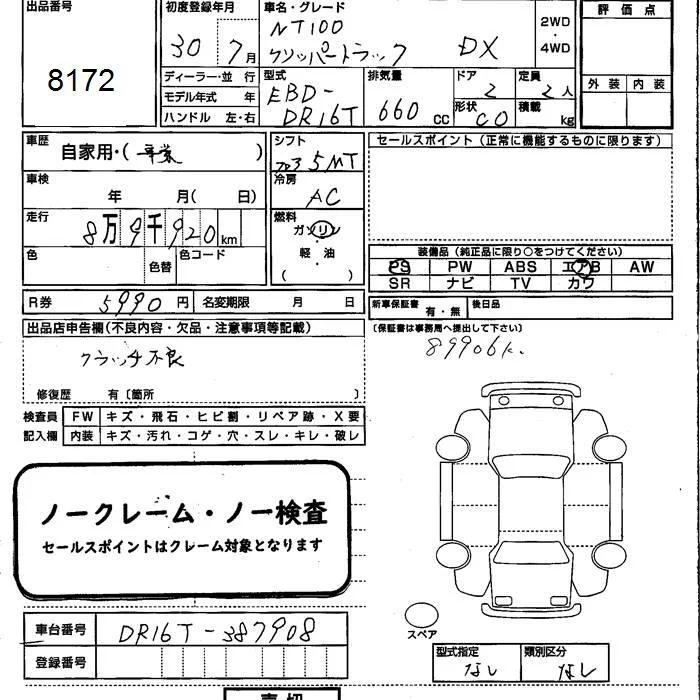 出品番号
8172
初度登録年月
30年 7月
車名・グレード
NT100
クリッパートラック DX
2WD
・
4WD
評価点
外装 内装
ディーラー・並行
モデル年式 年
ハンドル 左・右
型式
EBD-
DR16T
排気量
660 CC
ドア
2
定員
2人
形状
CO
積載
kg
車歴
自家用・( )
シフト
フロア5MT
セールスポイント(正常に機能するものに限ります)
車検
年 月( 日)
冷房
AC
走行
8万9千920km
燃料
ガソリン
・
軽油
( )
色
色替
色コード
装備品(純正品に限り○をつけてください)
PS PW ABS エアB AW
SR ナビ TV カワ
R券 5990円 名変期限 月 日
新車保証書 有・無 後日品
(保証書は事務局へ提出して下さい)
出品店申告欄(不良内容・欠品・注意事項等記載)
89906k.
クラッチ不良
修復歴 有〔箇所 〕
検査員
記入欄
FW キズ・飛石・ヒビ割・リペア跡・X要
内装 キズ・汚れ・コゲ・穴・スレ・キレ・破レ
ノークレーム・ノー検査
セールスポイントはクレーム対象となります
スペア
車台番号 DR16T-387908
登録番号
型式指定 類別区分
なし なし